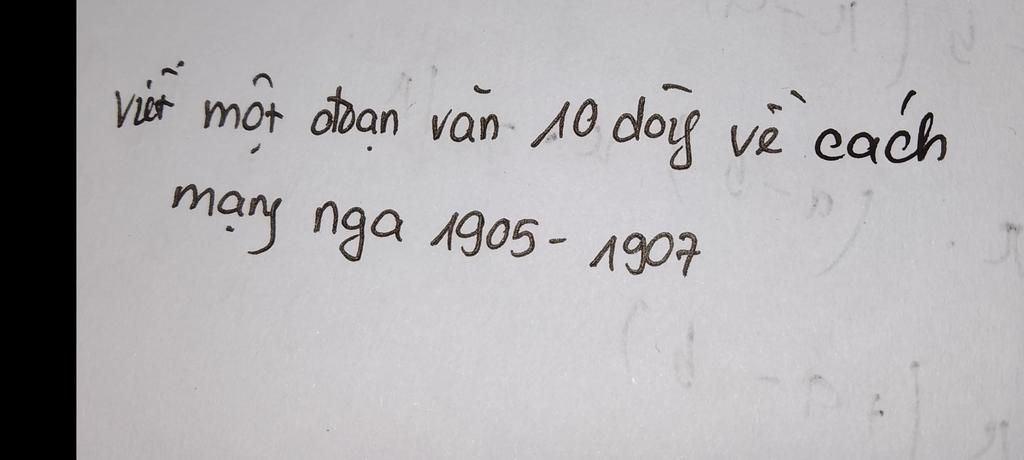 viết một đoạn văn 10 dòng về cách
mạng nga 1905 - 1907